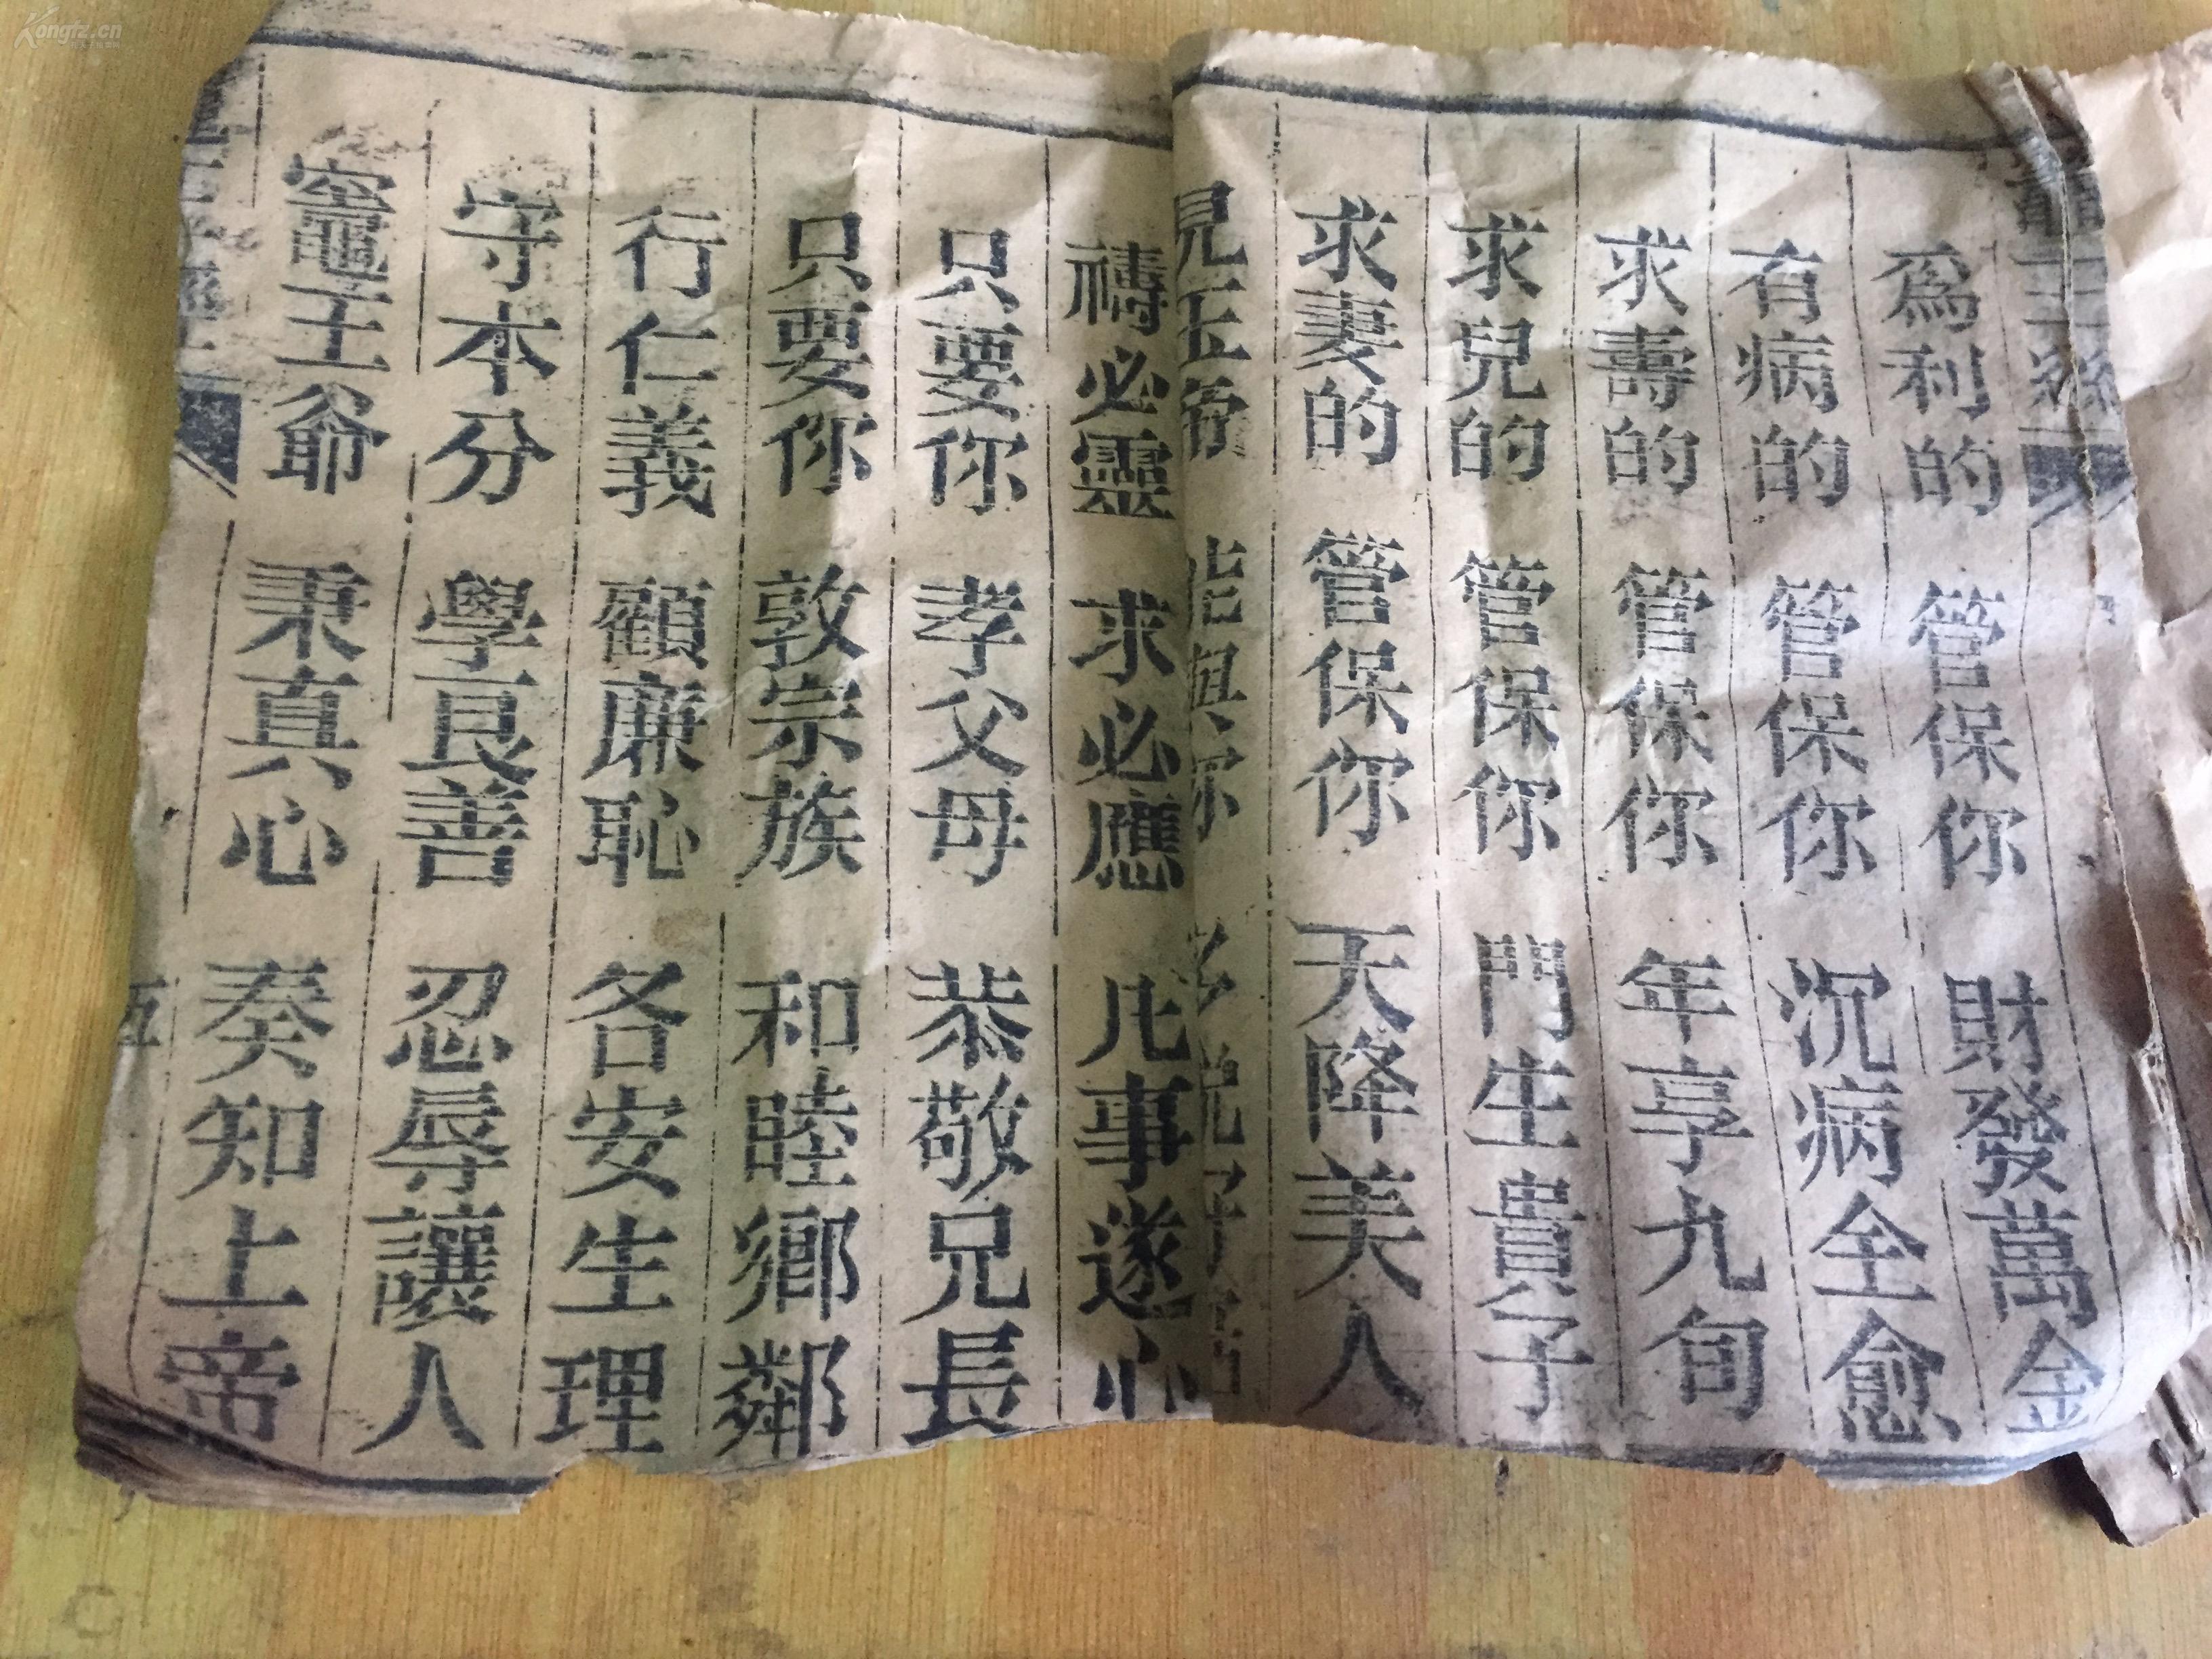 竈王經
爲利的 管保你 財發萬金
有病的 管保你 沉病全愈
求壽的 管保你 年享九旬
求兒的 管保你 門生貴子
求妻的 管保你 天降美人
見玉帝
禱必靈 求必應 凡事遂心
只要你 孝父母 恭敬兄長
只要你 敦宗族 和睦鄉鄰
行仁義 顧廉恥 各安生理
守本分 學良善 忍辱讓人
竈王爺 秉真心 奏知上帝
五
Kongfz.cn